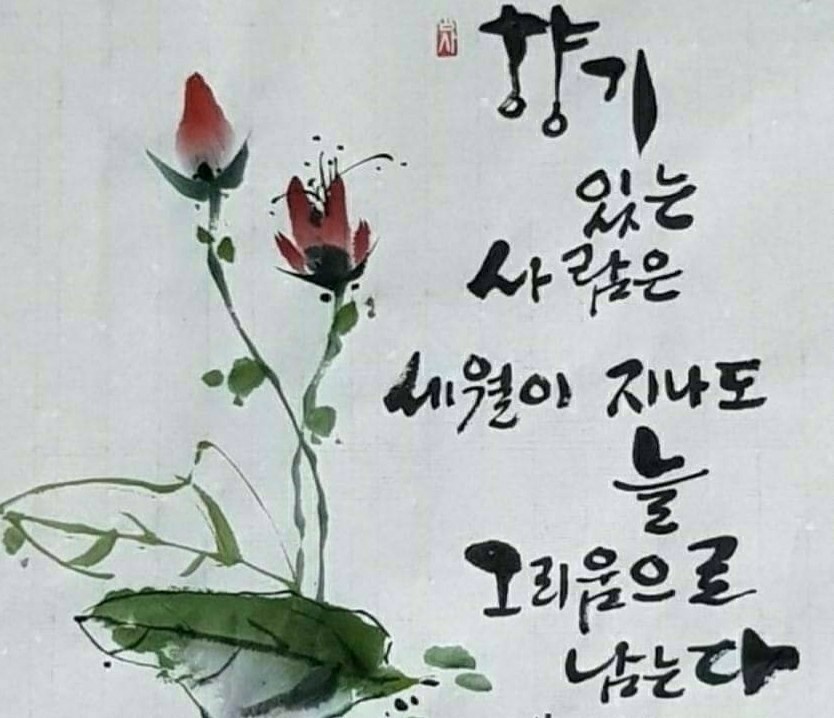 향기
있는
사람은
세월이 지나도
늘
그리움으로
남는다